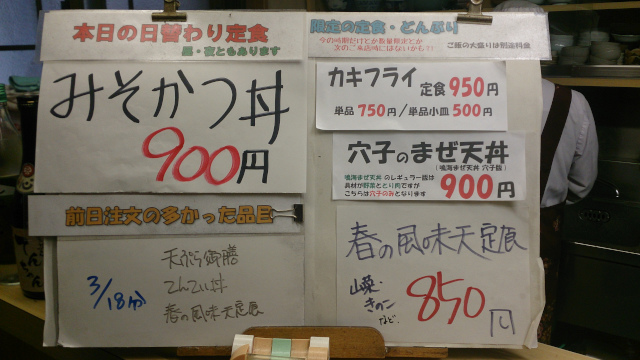 本日の日替わり定食
昼・夜ともあります
みそかつ丼
900円
前日注文の多かった品目
3/18分
天ぷら御膳
てんてい丼
春の風味天定食
限定の定食・どんぶり
今の時期だけとか数量限定とか
次のご来店時にはないかも??
ご飯の大盛りは別途料金
カキフライ 定食 950円
単品 750円/単品小皿 500円
穴子のまぜ天丼
(鳴海まぜ天丼 穴子版)
鳴海まぜ天丼 のレギュラー版は
具材が野菜ととり肉ですが
こちらは穴子のみとなります
900円
春の風味天定食
山菜・
きのこ
など
850円